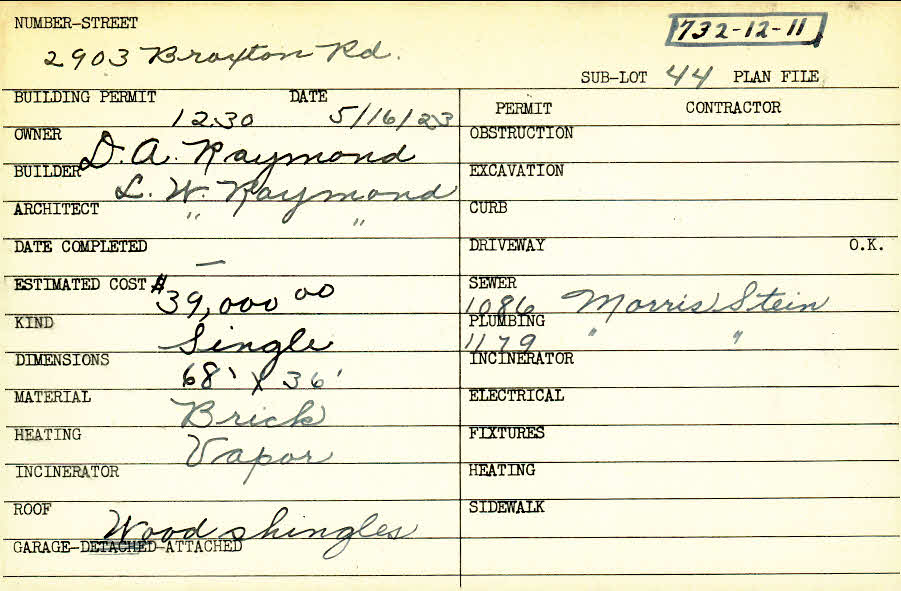 NUMBER-STREET
732-12-11
2903 Braxton Rd.
SUB-LOT 44 PLAN FILE
BUILDING PERMIT DATE
1230 5/16/23
PERMIT CONTRACTOR
OWNER D. A. Raymond
BUILDER L. W. Raymond
ARCHITECT " "
DATE COMPLETED —
ESTIMATED COST $39,000 00
KIND Single
DIMENSIONS 68' X 36'
MATERIAL Brick
HEATING Vapor
INCINERATOR
ROOF Wood shingles
GARAGE-DETACHED-ATTACHED
OBSTRUCTION
EXCAVATION
CURB
DRIVEWAY O.K.
SEWER
1086 Morris Stein
PLUMBING
1179 " "
INCINERATOR
ELECTRICAL
FIXTURES
HEATING
SIDEWALK